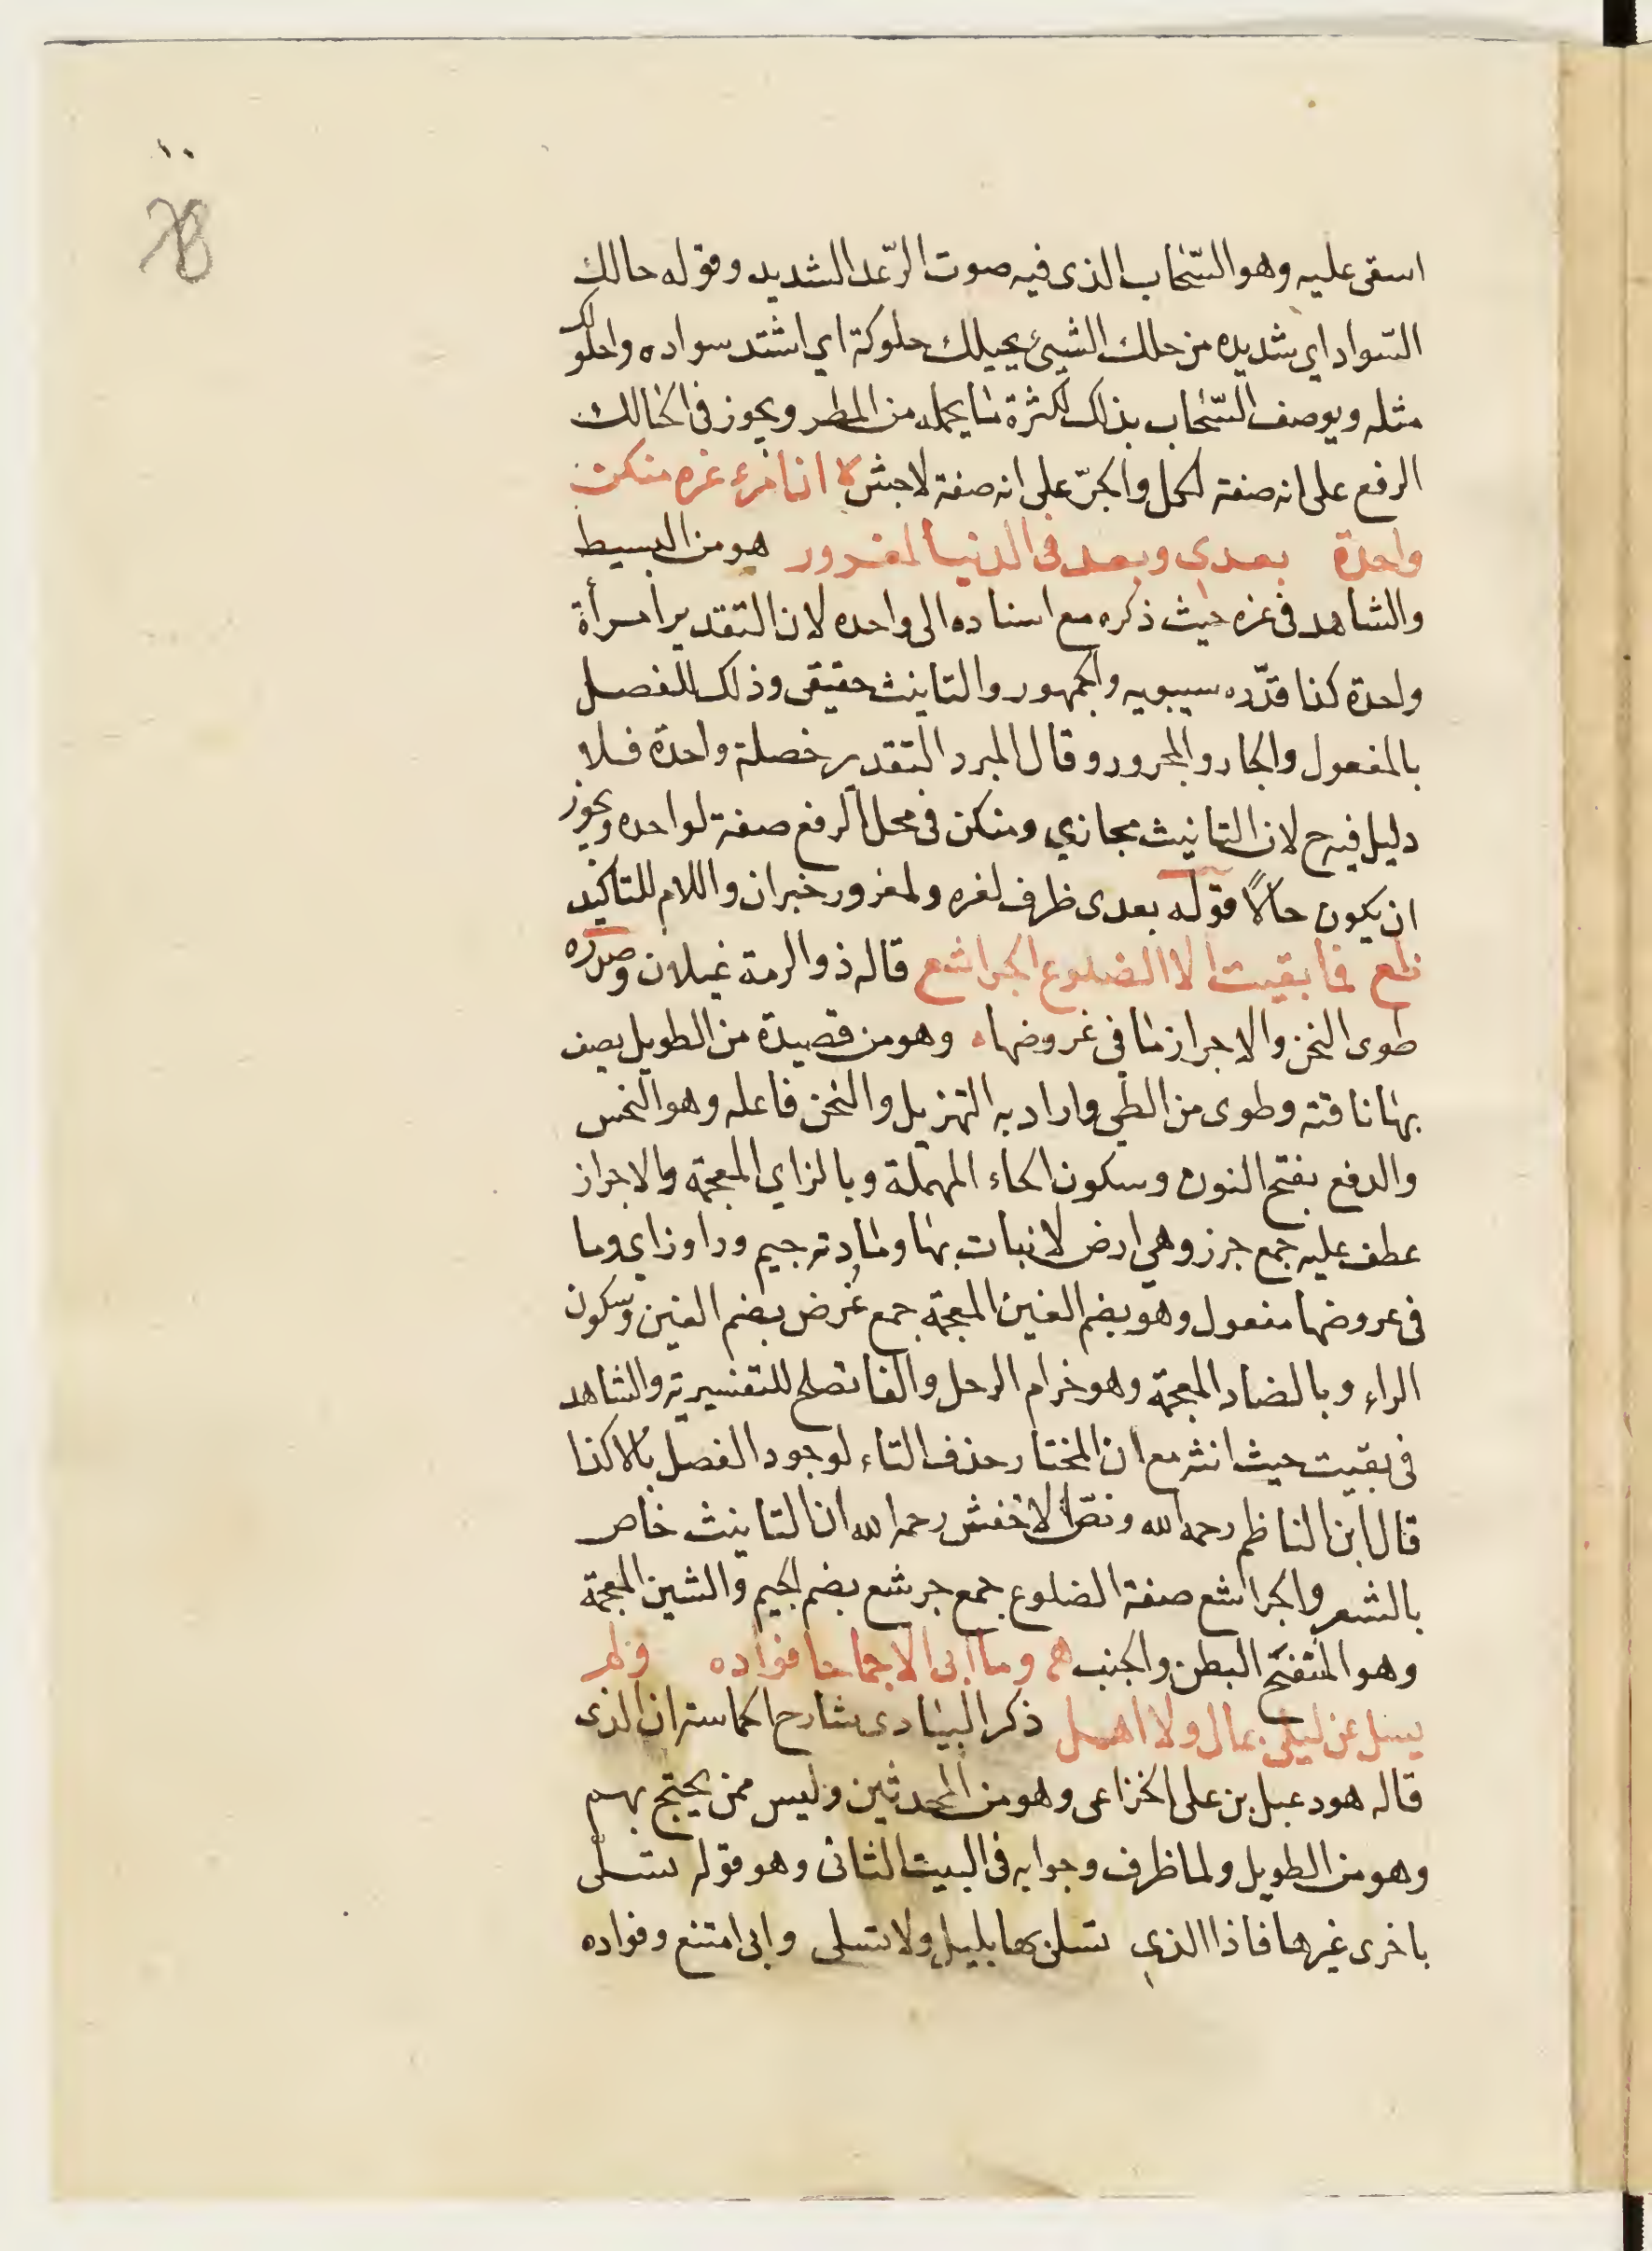 ١٠
78
اسقى عليه وهو السّحاب الذى فيه صوت الرّعد الشديد وقوله حالك
السّواد اي شديده من حلك الشيئ يحيلك حلوكة اي اشتد سواده واحلولك
مثله ويوصف السّحاب بذلك لكثرة ما يحمله من المطر ويجوز في الحالك
الرفع على انه صفة لكل والجرّ على انه صفة لاجش ان امرء غره منكن
واحدة بعدى وبعد فى الدنيا لمغرور هو من البسيط
والشاهد فى غره حيث ذكره مع اسناده الى واحده لان التقدير امرأة
واحدة كذا قدّره سيبويه والجمهور والتانيث حقيقى وذلك للفصل
بالمفعول والجار والمجرور وقال المبرد التقدير خصلة واحدة فلا
دليل فيه ح لان التانيث مجازي ومنكن فى محل الرفع صفة لواحده ويجوز
ان يكون حالاً قوله بعدى ظرف لغره ولمغرور خبر ان واللام للتاكيد
ظع فما بقيت الا الضلوع الجراشع قاله ذو الرمة غيلان وصدره
طوى النحز والاجراز ما فى غروضها وهو من قصيدة من الطويل يصف
بها ناقته وطوى من الطي واراد به التهزيل والنحز فاعله وهو النخس
والدفع بفتح النون وسكون الحاء المهملة وبالزاي المعجمة والاجراز
عطف عليه جمع جرز وهي ارض لا نبات بها ومادته جيم ورا وزاي وما
فى عروضها مفعول وهو بضم الغين المعجمة جمع غُرض بضم الغين وسكون
الراء وبالضاد المعجمة وهو خرام الرحل والفا تصلح للتفسيرية والشاهد
فى بقيت حيث انثه مع ان المختار حذف التاء لوجود الفصل بالا كذا
قال ابن الناظم رحمه الله ونصّ الاخفش رحمه الله ان التانيث خاص
بالشعر والجراشع صفة الضلوع جمع جرشع بضم الجيم والشين المعجمة
وهو المنتفخ البطن والجنب هم ولما ابى الا جماحا فؤاده ولم
يسل عن ليلى بمال ولا اهل ذكر البيادى شارح الحماسة ان الذى
قاله هو دعبل بن على الخزاعى وهو من المحدثين وليس ممن يحتج بهم
وهو من الطويل ولما ظرف وجوابه فى البيت الثانى وهو قوله تسلى
باخرى غيرها فاذا الذي تسلى بها بليلى ولا تسلى وابى امتنع وفواده